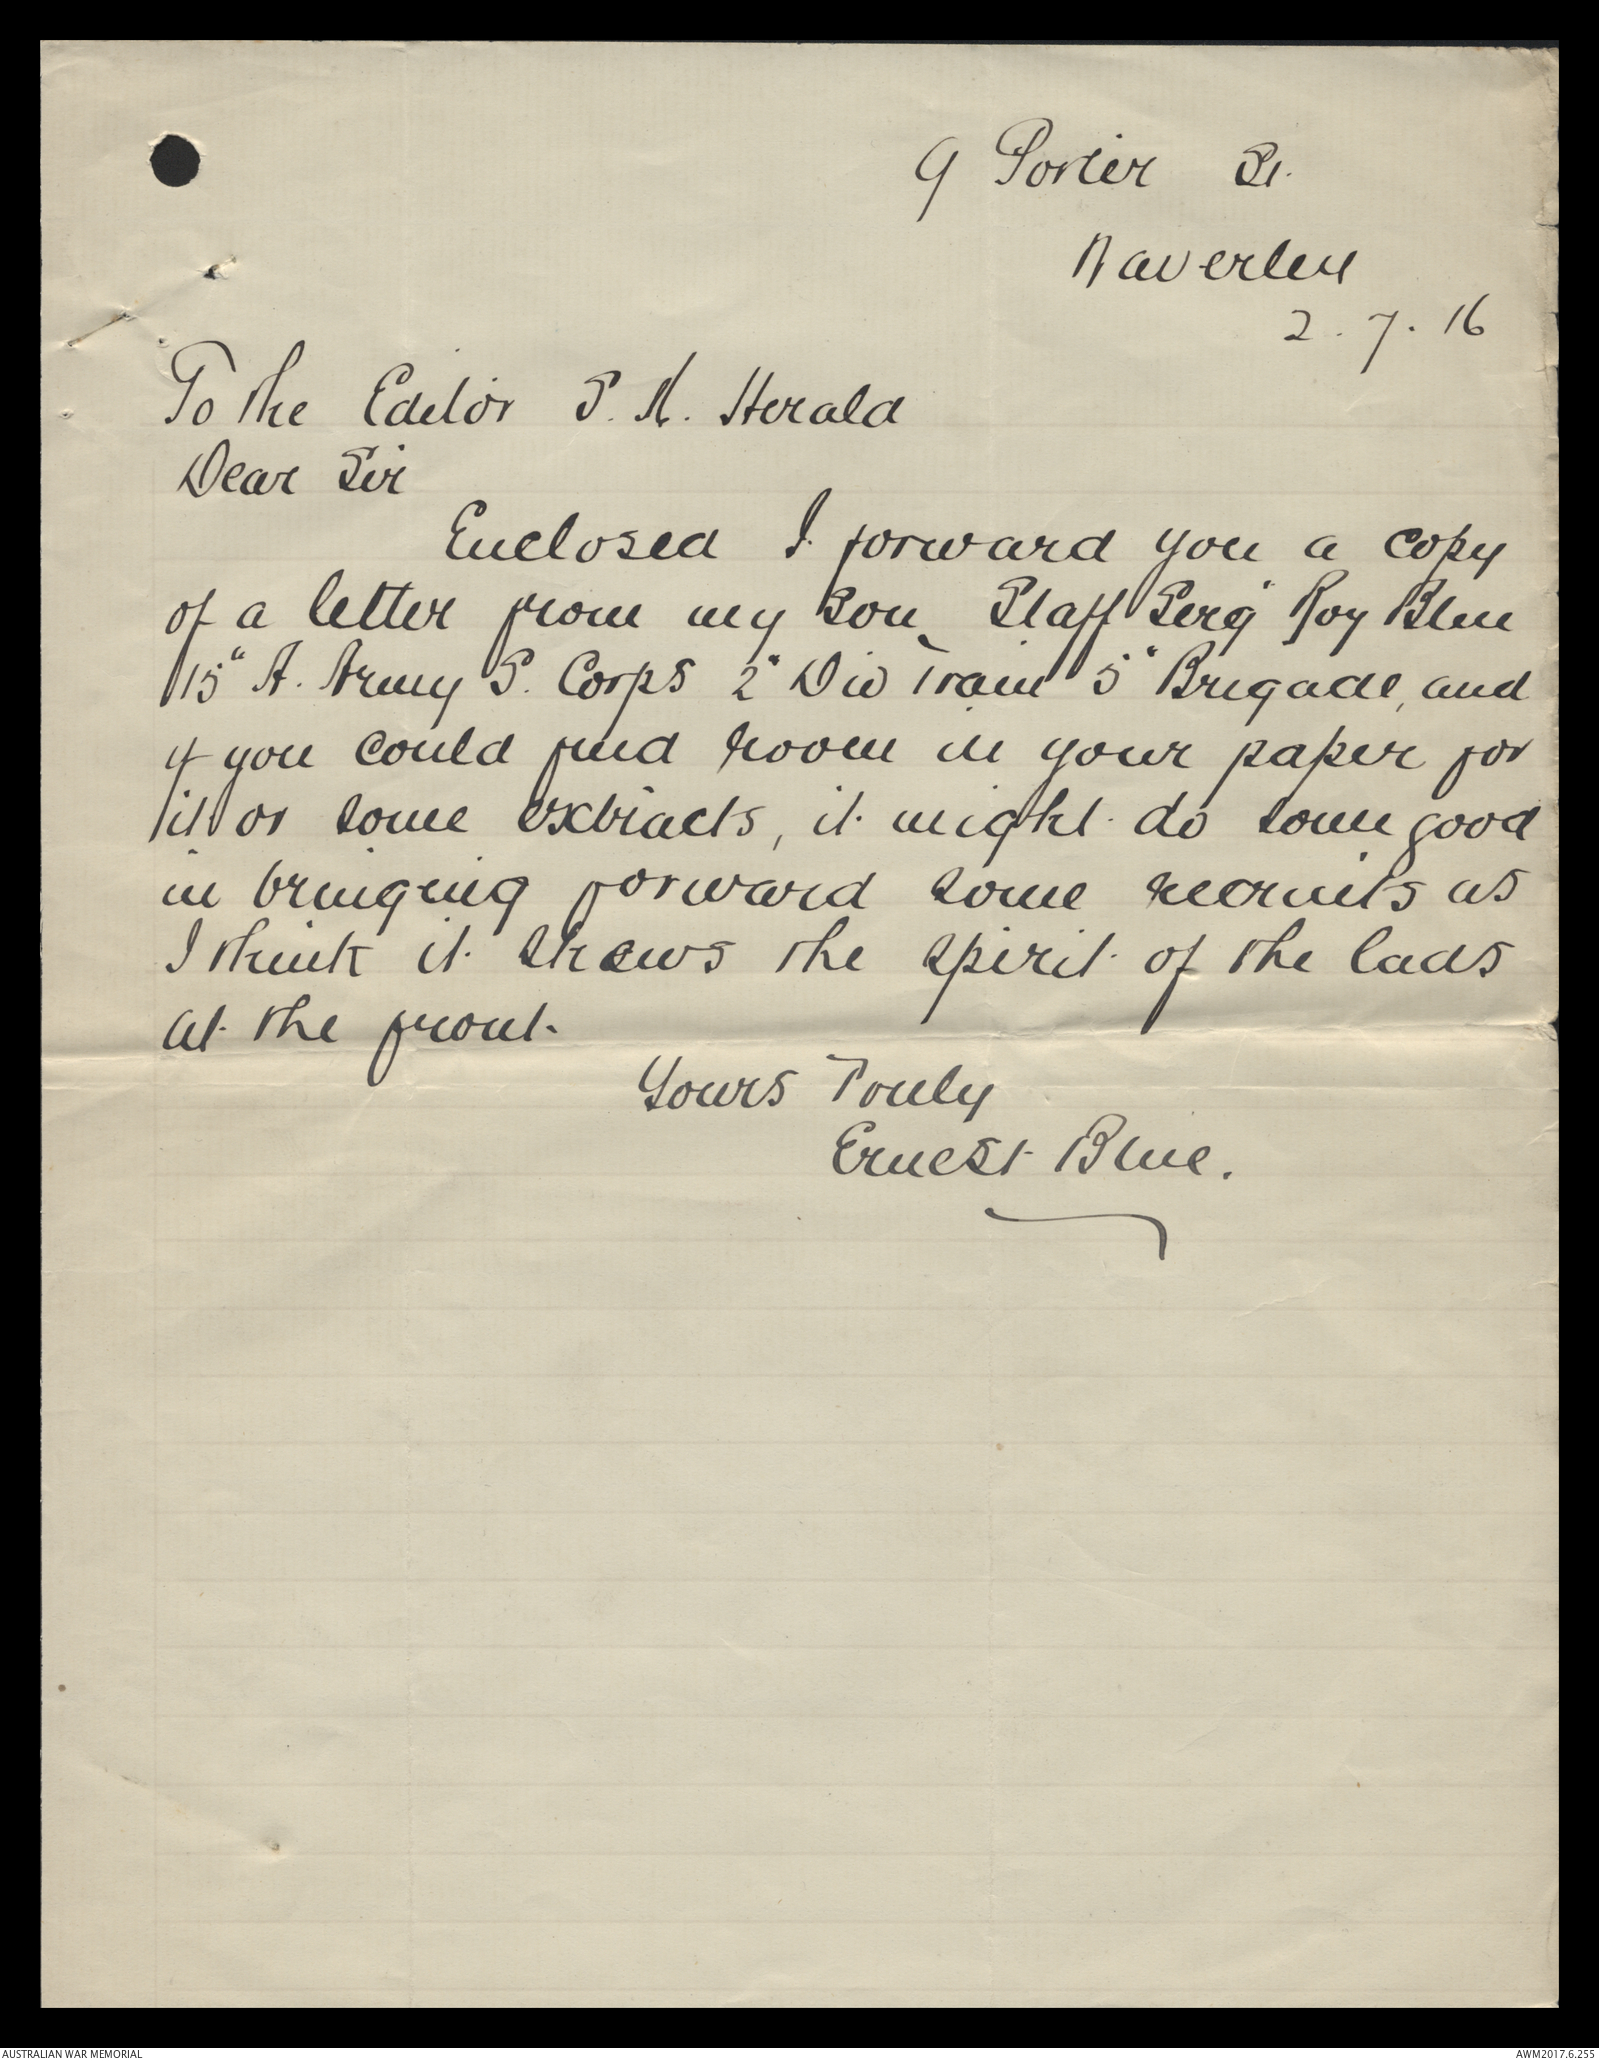 9 Porter St.
Waverley
2.7.16
To the Editor S. M. Herald
Dear Sir
Enclosed I forward you a copy
of a letter from my son, Staff Serg" Roy Blue
15" A. Army S. Corps 2" Div Train 5" Brigade, and
if you could find room in your paper for
it or some extracts, it might do some good
in bringing forward some recruits as
I think it shews the spirit of the lads
at the front.
Yours Truly
Ernest Blue.
AUSTRALIAN WAR MEMORIAL
AWM2017.6.255